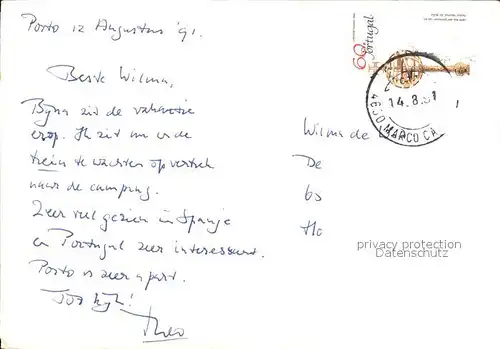 Porto 12 Augustus '91.
Beste Wilma,
Bijna zit de vakantie
erop. Ik zit nu in de
trein te wachten op vertrek
naar de camping.
Zeer veel gezien in Spanje
en Portugal zeer interessant.
Porto is zeer apart.
Tot
Theo
Wilma de
De
60
Portugal
14.8.91
4630 MARCO CA
privacy protection
Datenschutz